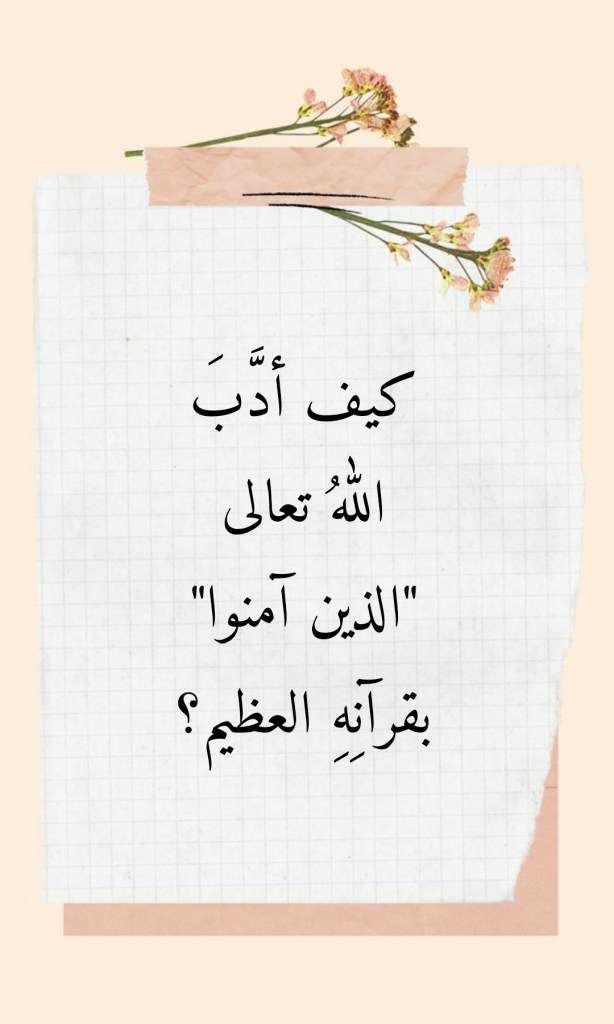 كيف أدَّبَ
اللهُ تعالى
"الذين آمنوا"
بقرآنِهِ العظيم؟